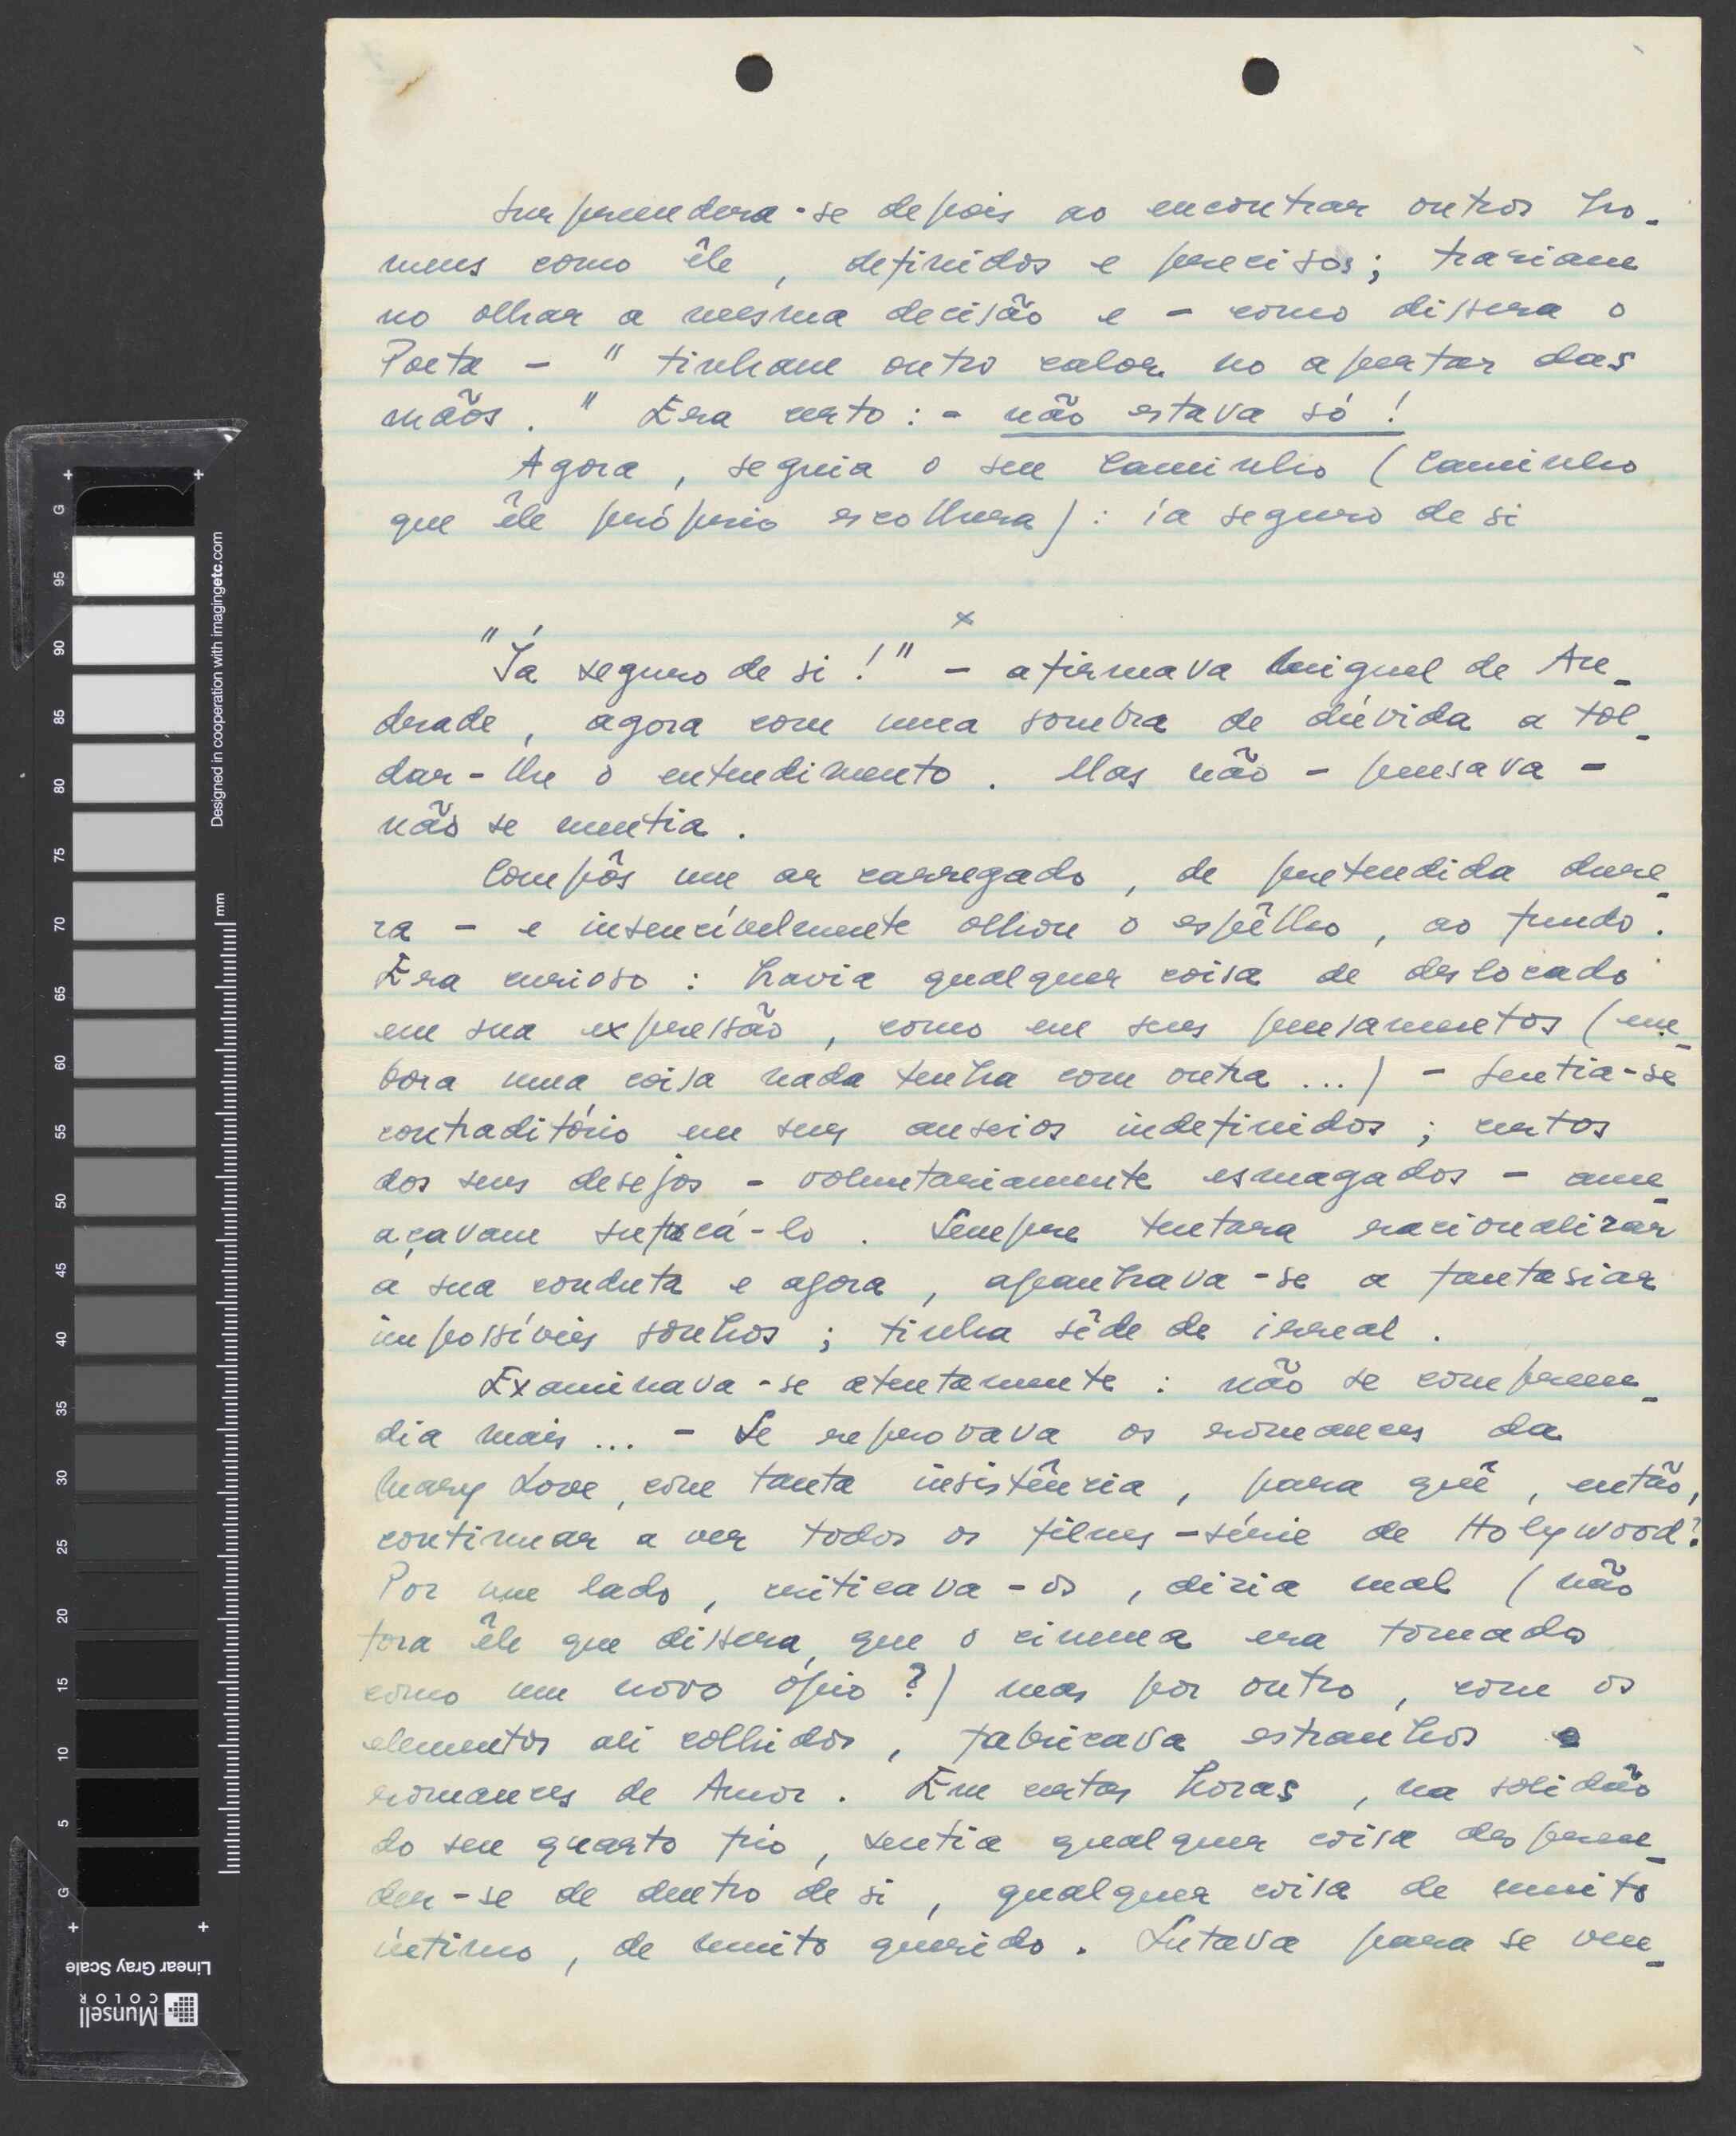 Surpreendera-se depois ao encontrar outros ho-
mens como êle, definidos e precisos; traziam
no olhar a mesma decisão e - como dissera o
Poeta - " tinham outro calor no apertar das
mãos." Era certo: - não estava só!
Agora, seguia o seu caminho (caminho
que êle próprio escolhera): ía seguro de si
x
"Ía seguro de si!" - afirmava Miguel de An-
drade, agora com uma sombra de dúvida a tol-
dar-lhe o entendimento. Mas não - pensava -
não se mentia.
Compôs um ar carregado, de pretendida dure-
za - e insencívelmente olhou o espêlho, ao fundo.
Era curioso: havia qualquer coisa de deslocado
em sua expressão, como em seus pensamentos (em-
bora uma coisa nada tenha com outra ...) - sentia-se
contraditório em seus anseios indefinidos; certos
dos seus desejos - voluntariamente esmagados - ame-
açavam sufocá-lo. Sempre tentara racionalizar
a sua conduta e agora, apanhava-se a fantasiar
impossíveis sonhos; tinha sêde de irreal.
Examinava-se atentamente: não se compreen-
dia mais ... - Se reprovava os romances da
Mary Love, com tanta insistência, para quê, então,
continuar a ver todos os filmes-série de Holywood?
Por um lado, criticava-os, dizia mal (não
fora êle que dissera que o cinema era tomado
como um novo ópio?) mas por outro, com os
elementos ali colhidos, fabricava estranhos
romances de Amor. Em certas horas, na solidão
do seu quarto frio, sentia qualquer coisa despren-
der-se de dentro de si, qualquer coisa de muito
íntimo, de muito querido. Lutava para se ven-
Designed in cooperation with imagingetc.com
mm
G
95
90
85
80
75
70
65
60
55
50
45
40
35
30
25
20
15
10
5
G
Linear Gray Scale
Munsell
COLOR